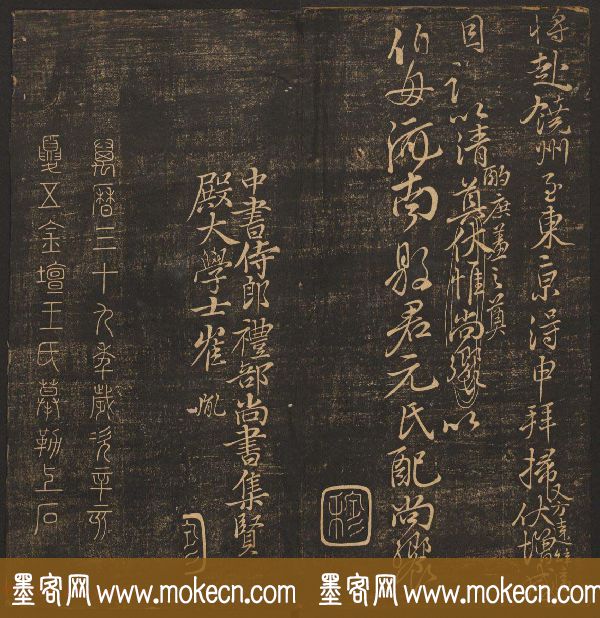 將赴饒州至東京得申拜掃又方遠伏增
目謹以清酌庶羞之奠奠伏惟尚饗以
伯母河南縣君元氏配尚饗
中書侍郎禮部尚書集賢
殿大學士崔胤
萬曆三十九年歲次辛亥
夏五金壇王氏摹勒上石
墨客网 www.mokecn.com 墨客网 www.mokecn.com